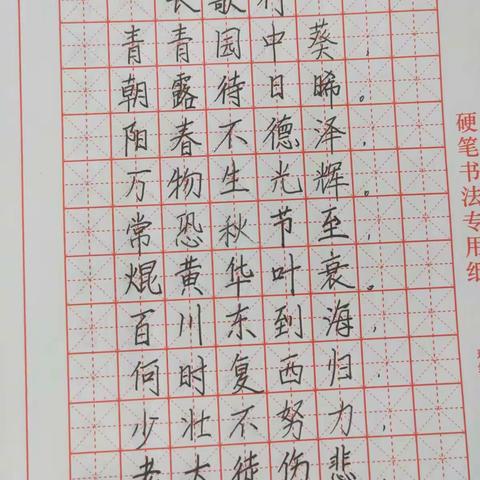 长歌行
青青园中葵，
朝露待日晞。
阳春不德泽，
万物生光辉。
常恐秋节至，
焜黄华叶衰。
百川东到海，
何时复西归，
少壮不努力，
老大徒伤悲
硬笔书法专用纸